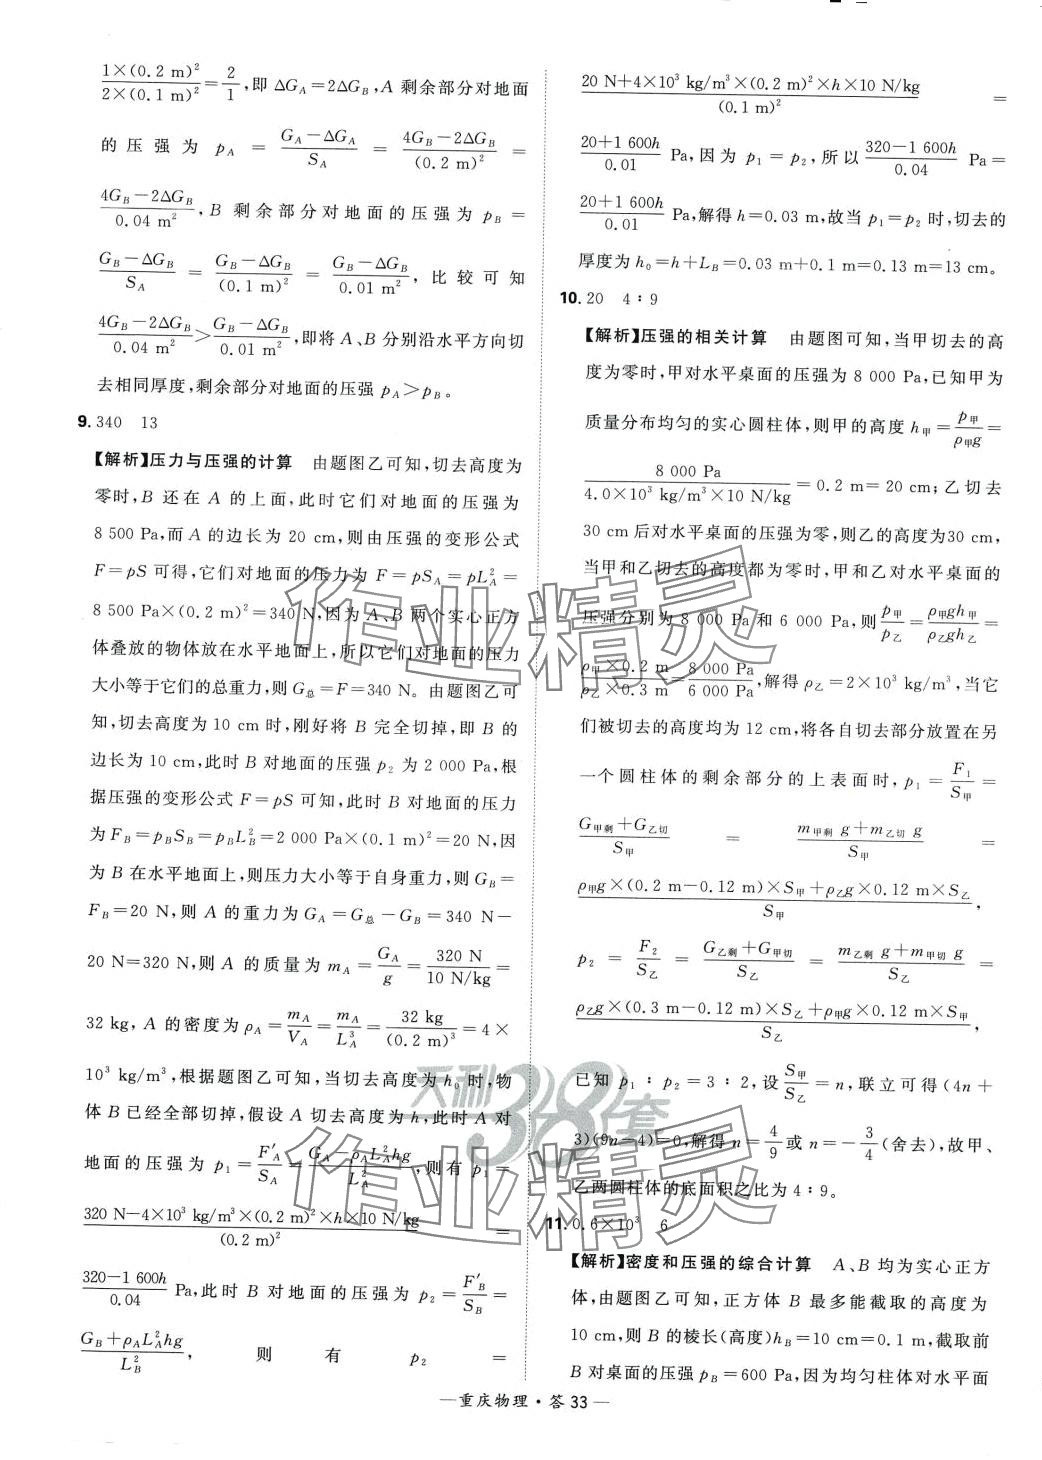 1×(0.2 m)²/2×(0.1 m)²=2/1,即 ΔG_A=2ΔG_B,A 剩余部分对地面
的压强为 p_A=(G_A-ΔG_A)/S_A=(4G_B-2ΔG_B)/(0.2 m)²=
(4G_B-2ΔG_B)/0.04 m²,B 剩余部分对地面的压强为 p_B=
(G_B-ΔG_B)/S_A=(G_B-ΔG_B)/(0.1 m)²=(G_B-ΔG_B)/0.01 m²,比较可知
(4G_B-2ΔG_B)/0.04 m²>(G_B-ΔG_B)/0.01 m²,即将 A、B 分别沿水平方向切
去相同厚度,剩余部分对地面的压强 p_A>p_B。
9. 340 13
【解析】压力与压强的计算 由题图乙可知,切去高度为
零时,B 还在 A 的上面,此时它们对地面的压强为
8 500 Pa,而 A 的边长为 20 cm,则由压强的变形公式
F=pS 可得,它们对地面的压力为 F=pS_A=pL_A²=
8 500 Pa×(0.2 m)²=340 N,因为 A、B 两个实心正方
体叠放的物体放在水平地面上,所以它们对地面的压力
大小等于它们的总重力,则 G总=F=340 N。由题图乙可
知,切去高度为 10 cm 时,刚好将 B 完全切掉,即 B 的
边长为 10 cm,此时 B 对地面的压强 p₂ 为 2 000 Pa,根
据压强的变形公式 F=pS 可知,此时 B 对地面的压力
为 F_B=p_BS_B=p_BL_B²=2 000 Pa×(0.1 m)²=20 N,因
为 B 在水平地面上,则压力大小等于自身重力,则 G_B=
F_B=20 N,则 A 的重力为 G_A=G总-G_B=340 N-
20 N=320 N,则 A 的质量为 m_A=G_A/g=320 N/10 N/kg=
32 kg,A 的密度为 ρ_A=m_A/V_A=m_A/L_A³=32 kg/(0.2 m)³=4×
10³ kg/m³,根据题图乙可知,当切去高度为 h₀ 时,物
体 B 已经全部切掉,假设 A 切去高度为 h,此时 A 对
地面的压强为 p₁=F′_A/S_A=(G_A-ρ_AL_A²hg)/L_A²,则有 p₁=
(320 N-4×10³ kg/m³×(0.2 m)²×h×10 N/kg)/(0.2 m)²=
(320-1 600h)/0.04 Pa,此时 B 对地面的压强为 p₂=F′_B/S_B=
(G_B+ρ_AL_A²hg)/L_B²,则有 p₂=
(20 N+4×10³ kg/m³×(0.2 m)²×h×10 N/kg)/(0.1 m)²=
(20+1 600h)/0.01 Pa,因为 p₁=p₂,所以(320-1 600h)/0.04 Pa=
(20+1 600h)/0.01 Pa,解得 h=0.03 m,故当 p₁=p₂ 时,切去的
厚度为 h₀=h+L_B=0.03 m+0.1 m=0.13 m=13 cm。
10. 20 4∶9
【解析】压强的相关计算 由题图可知,当甲切去的高
度为零时,甲对水平桌面的压强为 8 000 Pa,已知甲为
质量分布均匀的实心圆柱体,则甲的高度 h甲=p甲/ρ甲g=
8 000 Pa/4.0×10³ kg/m³×10 N/kg=0.2 m=20 cm;乙切去
30 cm 后对水平桌面的压强为零,则乙的高度为30 cm,
当甲和乙切去的高度都为零时,甲和乙对水平桌面的
压强分别为 8 000 Pa 和 6 000 Pa,则 p甲/p乙=ρ甲gh甲/ρ乙gh乙=
ρ甲×0.2 m/ρ乙×0.3 m=8 000 Pa/6 000 Pa,解得 ρ乙=2×10³ kg/m³,当它
们被切去的高度均为 12 cm,将各自切去部分放置在另
一个圆柱体的剩余部分的上表面时,p₁=F₁/S甲=
(G甲剩+G乙切)/S甲=(m甲剩 g+m乙切 g)/S甲=
(ρ甲g×(0.2 m-0.12 m)×S甲+ρ乙g×0.12 m×S乙)/S甲,
p₂=F₂/S乙=(G乙剩+G甲切)/S乙=(m乙剩 g+m甲切 g)/S乙=
(ρ乙g×(0.3 m-0.12 m)×S乙+ρ甲g×0.12 m×S甲)/S乙,
已知 p₁∶p₂=3∶2,设 S甲/S乙=n,联立可得(4n+
3)(9n-4)=0,解得 n=4/9或 n=-3/4(舍去),故甲、
乙两圆柱体的底面积之比为 4∶9。
11. 0.6×10³ 6
【解析】密度和压强的综合计算 A、B 均为实心正方
体,由题图乙可知,正方体 B 最多能截取的高度为
10 cm,则 B 的棱长(高度)h_B=10 cm=0.1 m,截取前
B 对桌面的压强 p_B=600 Pa,因为均匀柱体对水平面
—重庆物理·答 33—
作业精灵
天利38套
作业精灵